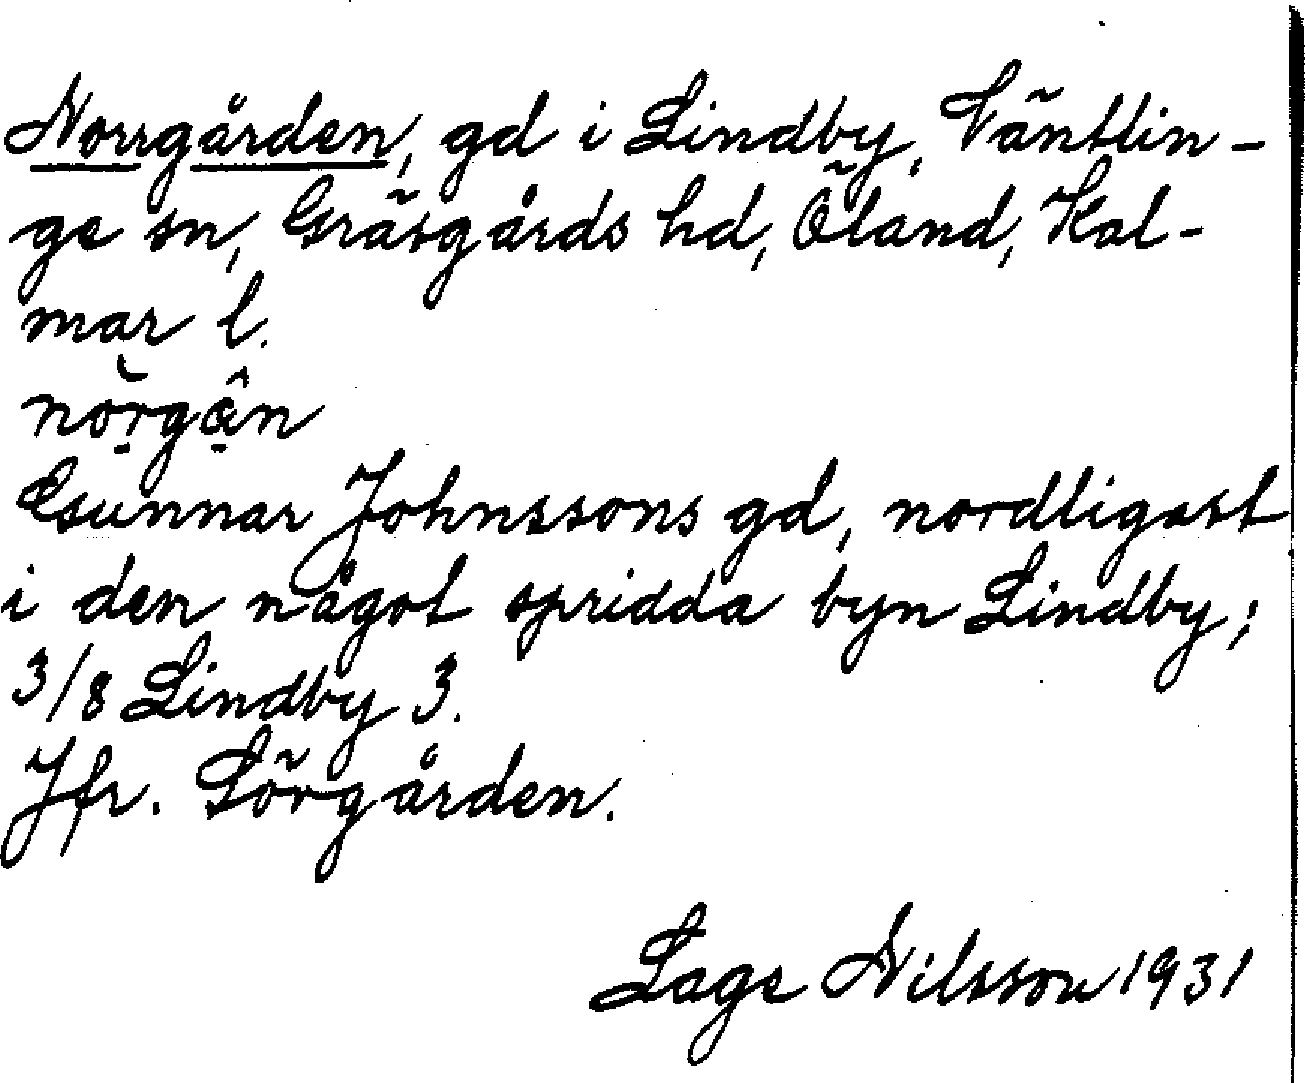 Norrgården, gd i Lindby, Väntlin-
ge sn, Gräsgårds hd, Öland, Kal-
mar l.
nòr̠gâ̠n
Gunnar Johnssons gd, nordligast
i den något spridda byn Lindby;
3/8 Lindby 3.
Jfr. Sörgården.
Lage Nilsson 1931